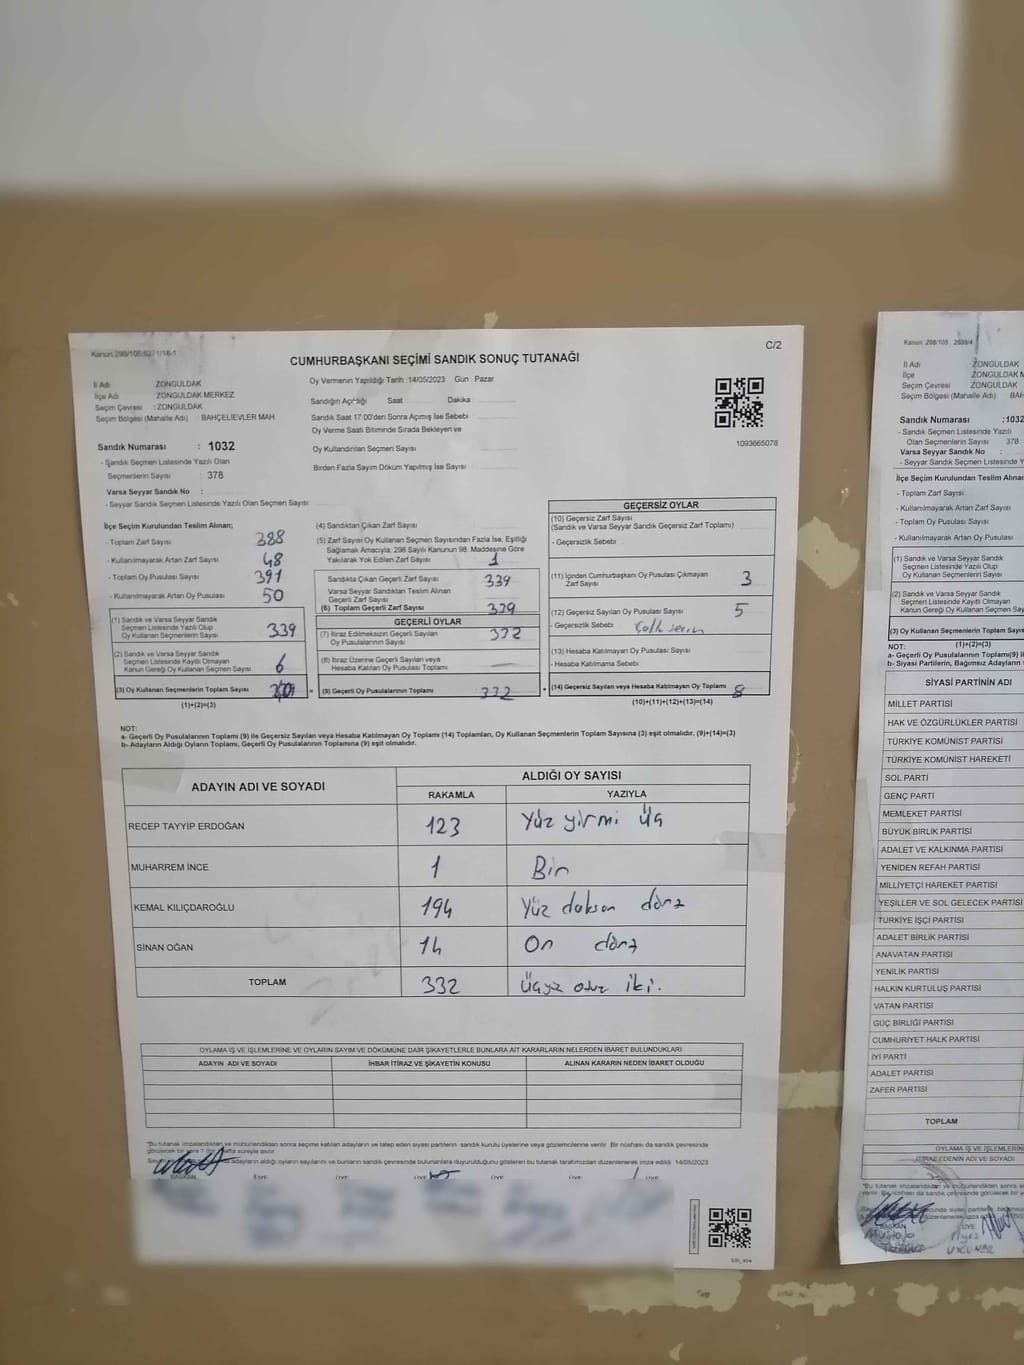 Kanun:298/105,6271/18-1
C/2
CUMHURBAŞKANI SEÇİMİ SANDIK SONUÇ TUTANAĞI
İl Adı ZONGULDAK
İlçe Adı ZONGULDAK MERKEZ
Seçim Çevresi : ZONGULDAK
Seçim Bölgesi (Mahalle Adı) BAHÇELİEVLER MAH
Sandık Numarası : 1032
- Sandık Seçmen Listesinde Yazılı Olan
Seçmenlerin Sayısı : 378
Varsa Seyyar Sandık No :
- Seyyar Sandık Seçmen Listesinde Yazılı Olan Seçmen Sayısı
Oy Vermenin Yapıldığı Tarih 14/05/2023 Gün Pazar
Sandığın Açıldığı Saat Dakika
Sandık Saat 17:00'den Sonra Açımış İse Sebebi
Oy Verme Saati Bitiminde Sırada Bekleyen ve
Oy Kullandırılan Seçmen Sayısı
Birden Fazla Sayım Döküm Yapılmış İse Sayısı
1093665078
İlçe Seçim Kurulundan Teslim Alınan;
- Toplam Zarf Sayısı 388
- Kullanılmayarak Artan Zarf Sayısı 48
- Toplam Oy Pusulası Sayısı 391
- Kullanılmayarak Artan Oy Pusulası 50
(1) Sandık ve Varsa Seyyar Sandık
Seçmen Listesinde Yazılı Olup
Oy Kullanan Seçmenlerin Sayısı 339
(2) Sandık ve Varsa Seyyar Sandık
Seçmen Listesinde Kayıtlı Olmayan
Kanun Gereği Oy Kullanan Seçmen Sayısı 6
(3) Oy Kullanan Seçmenlerin Toplam Sayısı
(1)+(2)=(3)
(4) Sandıktan Çıkan Zarf Sayısı
(5) Zarf Sayısı Oy Kullanan Seçmen Sayısından Fazla İse, Eşitliği
Sağlamak Amacıyla; 298 Sayılı Kanunun 98. Maddesine Göre
Yakılarak Yok Edilen Zarf Sayısı 1
Sandıkta Çıkan Geçerli Zarf Sayısı 339
Varsa Seyyar Sandıktan Teslim Alınan
Geçerli Zarf Sayısı
(6) Toplam Geçerli Zarf Sayısı 339
GEÇERLİ OYLAR
(7) İtiraz Edilmeksizin Geçerli Sayılan
Oy Pusulalarının Sayısı 332
(8) İtiraz Üzerine Geçerli Sayılan veya
Hesaba Katılan Oy Pusulası Toplamı
= (9) Geçerli Oy Pusulalarının Toplamı 332
GEÇERSİZ OYLAR
(10) Geçersiz Zarf Sayısı
(Sandık ve Varsa Seyyar Sandık Geçersiz Zarf Toplamı)
- Geçersizlik Sebebi
(11) İçinden Cumhurbaşkanı Oy Pusulası Çıkmayan
Zarf Sayısı 3
(12) Geçersiz Sayılan Oy Pusulası Sayısı 5
- Geçersizlik Sebebi
(13) Hesaba Katılmayan Oy Pusulası Sayısı
- Hesaba Katılmama Sebebi
+ (14) Geçersiz Sayılan veya Hesaba Katılmayan Oy Toplamı 8
(10)+(11)+(12)+(13)=(14)
NOT:
a- Geçerli Oy Pusulalarının Toplamı (9) ile Geçersiz Sayılan veya Hesaba Katılmayan Oy Toplamı (14) Toplamları, Oy Kullanan Seçmenlerin Toplam Sayısına (3) eşit olmalıdır. (9)+(14)=(3)
b- Adayların Aldığı Oyların Toplamı, Geçerli Oy Pusulalarının Toplamına (9) eşit olmalıdır.
ADAYIN ADI VE SOYADI ALDIĞI OY SAYISI
RAKAMLA YAZIYLA
RECEP TAYYİP ERDOĞAN 123 Yüz yirmi üç
MUHARREM İNCE 1 Bir
KEMAL KILIÇDAROĞLU 194 Yüz doksan dört
SİNAN OĞAN 14 On dört
TOPLAM 332 Üçyüz otuz iki.
OYLAMA İŞ VE İŞLEMLERİNE VE OYLARIN SAYIM VE DÖKÜMÜNE DAİR ŞİKAYETLERLE BUNLARA AİT KARARLARIN NELERDEN İBARET BULUNDUKLARI
ADAYIN ADI VE SOYADI İHBAR İTİRAZ VE ŞİKAYETİN KONUSU ALINAN KARARIN NEDEN İBARET OLDUĞU
"Bu tutanak imzalandıktan ve mühürlendikten sonra seçime katılan adayların ve talep eden siyasi partilerin sandık kurulu üyelerine veya gözlemcilerine verilir. Bir nüshası da sandık çevresinde
görülecek bir yere 1 (bir) hafta süreyle asılır
adayların aldığı oyların sayılarını ve bunların sandık çevresinde bulunanlara duyurulduğunu gösteren bu tutanak tarafımızdan düzenlenerek imza edildi. 14/05/2023
BAŞKAN ÜYE ÜYE ÜYE ÜYE ÜYE
Kanun: 298/105
İl Adı ZONGULDAK
İlçe ZONGULDAK M
Seçim Çevresi ZONGULDAK
Seçim Bölgesi (Mahalle Adı) BAH
Sandık Numarası :1032
- Sandık Seçmen Listesinde Yazılı
Olan Seçmenlerin Sayısı 378
Varsa Seyyar Sandık No :
- Seyyar Sandık Seçmen Listesinde Y
İlçe Seçim Kurulundan Teslim Alınan
- Toplam Zarf Sayısı
- Kullanılmayarak Artan Zarf Sayısı
- Toplam Oy Pusulası Sayısı
- Kullanılmayarak Artan Oy Pusulası
(1) Sandık ve Varsa Seyyar Sandık
Seçmen Listesinde Yazılı Olup
Oy Kullanan Seçmenlerin Sayısı
(2) Sandık ve Varsa Seyyar Sandık
Seçmen Listesinde Kayıtlı Olmayan
Kanun Gereği Oy Kullanan Seçmen Say
(3) Oy Kullanan Seçmenlerin Toplam Sayıs
(1)+(2)=(3)
NOT:
a- Geçerli Oy Pusulalarının Toplamı(9) il
b- Siyasi Partilerin, Bağımsız Adayların
SİYASİ PARTİNİN ADI
MİLLET PARTİSİ
HAK VE ÖZGÜRLÜKLER PARTİSİ
TÜRKİYE KOMÜNİST PARTİSİ
TÜRKİYE KOMÜNİST HAREKETİ
SOL PARTİ
GENÇ PARTİ
MEMLEKET PARTİSİ
BÜYÜK BİRLİK PARTİSİ
ADALET VE KALKINMA PARTİSİ
YENİDEN REFAH PARTİSİ
MİLLİYETÇİ HAREKET PARTİSİ
YEŞİLLER VE SOL GELECEK PARTİSİ
TÜRKİYE İŞÇİ PARTİSİ
ADALET BİRLİK PARTİSİ
ANAVATAN PARTİSİ
YENİLİK PARTİSİ
HALKIN KURTULUŞ PARTİSİ
VATAN PARTİSİ
GÜÇ BİRLİĞİ PARTİSİ
CUMHURİYET HALK PARTİSİ
İYİ PARTİ
ADALET PARTİSİ
ZAFER PARTİSİ
TOPLAM
OYLAMA İŞ VE İŞLEMLERİN
İTİRAZ EDENİN ADI VE SOYADI
"Bu tutanak imzalandıktan ve mühürlendikten sonra s
BAŞKAN ÜYE